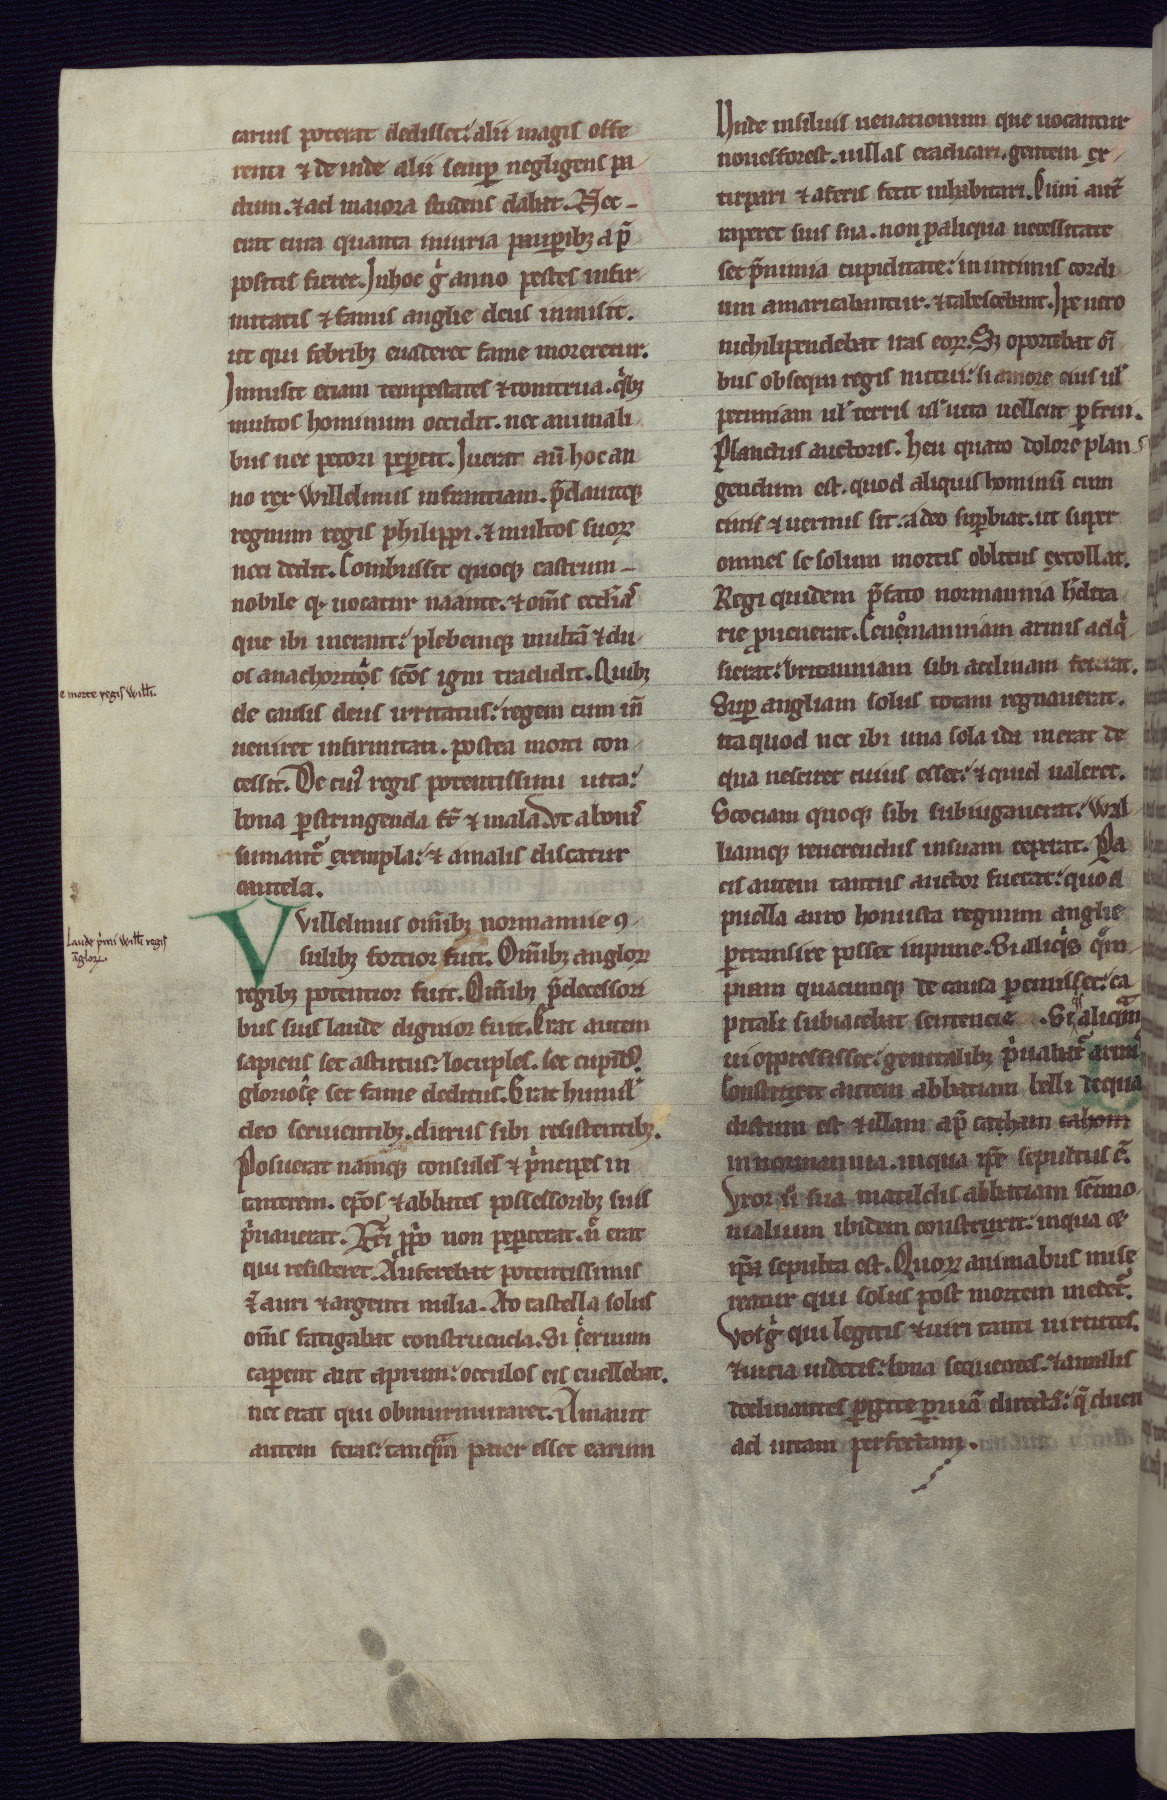 carius poterat dedisset: alii magis offe
renti & de inde alii semꝑ negligens pa
ctum. & ad maiora studens dabat. Nec
erat cura quanta iniuria pauꝑibꝫ a p̄
positis fieret. In hoc gͥ anno pestes infir
mitatis & famis anglie deus inmisit.
ut qui febribꝫ euaderet fame moreretur.
Inmisit etiam tempestates & tonitrua. qͥbꝫ
multos hominum occidit. nec animali
bus nec pecori peꝑcit. Iuerat aū hoc an
no rex Willelmus in franciam. p̄dauitqꝫ
regnum regis philippi. & multos suoꝝ
neci dedit. Combussit quoqꝫ castrum
nobile qͦ uocatur naante. & om̄s eccl̄ias
que ibi inerant: plebemqꝫ multā & du
os anachoritas sc̄os igni tradidit. Quibꝫ
de causis deus irritatus: regem cum in̄
ueniret infirmitati. postea morti con
cessit. De cuiꝰ regis potentissimi uita:
bona ꝑstringenda s̄t & mala. Vt a bonis
sumantᷓ exempla: & a malis discatur
cautela.
VVillelmus om̄ibꝫ normannie ꝯ
sulibꝫ fortior fuit. Om̄ibꝫ angloꝝ
regibꝫ potentior fuit. Om̄ibꝫ p̄decessori
bus suis laude dignior fuit. Erat autem
sapiens set astutus: locuples. set cupidꝰ.
gloriosꝰ set fame deditus. Erat humilˢ
deo seruientibꝫ. durus sibi resistentibꝫ.
Posuerat namqꝫ consules & pͥncipes in
carcerem. ep̄os & abbates possessoribꝫ suis
pͥuauerat. Frī ꝓpͥo non peꝑcerat. n̄ erat
qui resisteret. Auferebat potentissimis
auri & argenti milia. Ad castella solus
om̄s fatigabat construenda. Si ceruum
caꝑent aut aprum: occulos eis euellebat.
nec erat qui obmurmuraret. Amauit
autem feras: tanqͣm pater esset earum
Vnde in siluis uenationum que uocantur
nouesforest. uillas eradicari. gentem ex
tirpari & a feris fecit inhabitari. Cum aut̄
raperet suis sua. non ꝑ aliqua necessitate
set p̄ nimia cupiditate: in intimis cordi
um amaricabantur. & tabescebant. Ip̄e uero
nichilipendebat iras eoꝝ. Sꝫ oportebat om̄i
bus obsequi regis nutui: si amore eius ulˈ
pecuniam ulˈ terris ulˈ uita uellent ꝑfrui.
Planctus auctoris. heu quāto dolore plan
gendum est. quod aliquis hominū cum
cinis & uermis sit. adeo suꝑbiat. ut super
omnes se solum mortis oblitus extollat.
Regi quidem p̄fato normannia hˈdita
rie ꝓuenerat. Cenomanniam armis adqͥ
sierat: britanniam sibi acliuam fecerat.
Suꝑ angliam solus totam regnauerat.
ita quod nec ibi una sola ida inerat de
qua nesciret cuius esset: & quid ualeret.
Scociam quoqꝫ sibi subiugauerat: Wal
liamqꝫ reuerendus in suam ceperat. Pa
cis autem tantus auctor fuerat: quod
puella auro honusta regnum anglie
ꝑtransire posset inpune. Si aliqͥs qͦm
piam quacunqꝫ de causa ꝑemisset: ca
pitali subiacebat sentencie. Si qͥs aliquam
ui oppressisset: genitalibꝫ pͥuabatᷓ armis
Construxit autem abbatiam belli de qua
dictum est & illam ap̄ catham cahom
in normannia. in qua ip̄e sepultus ē.
Vxor ū sua matildis abbatiam sc̄imo
nialium ibidem construxit. in qua &
ip̄a sepulta est. Quoꝝ animabus mise
reatur qui solus post mortem medetᷓ.
Vos gͥ qui legitis & uiri tanti uirtutes.
& uicia uidetis: bona sequentes. & a malis
declinantes ꝑgite ꝑ uiā directā: q̄ ducit
ad uitam perfectam.
e morte regis Willˈi.
Laude pͥmi Willˈi regis
angloꝝ.